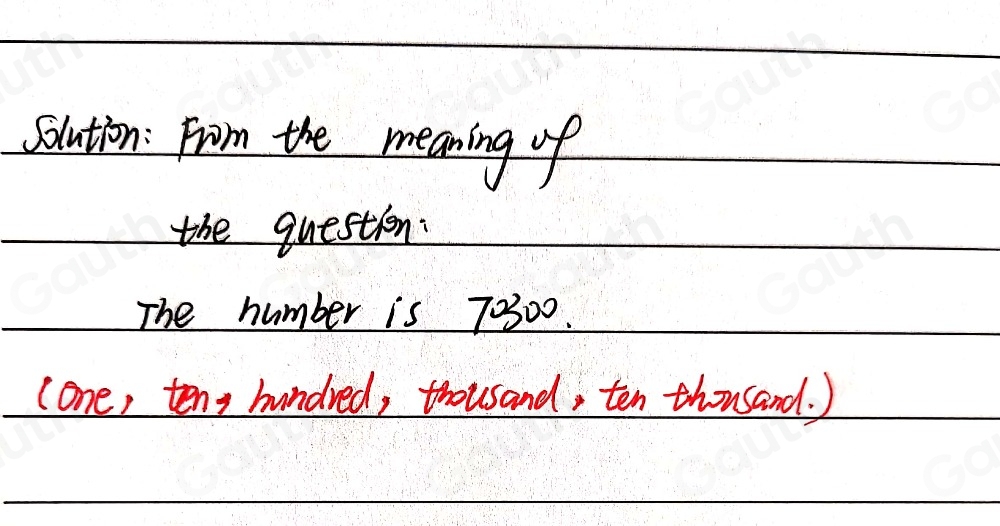 Solution: From the meaning of
the question:
The number is 70300.
(one, ten, hundred, thousand, ten thousand.)